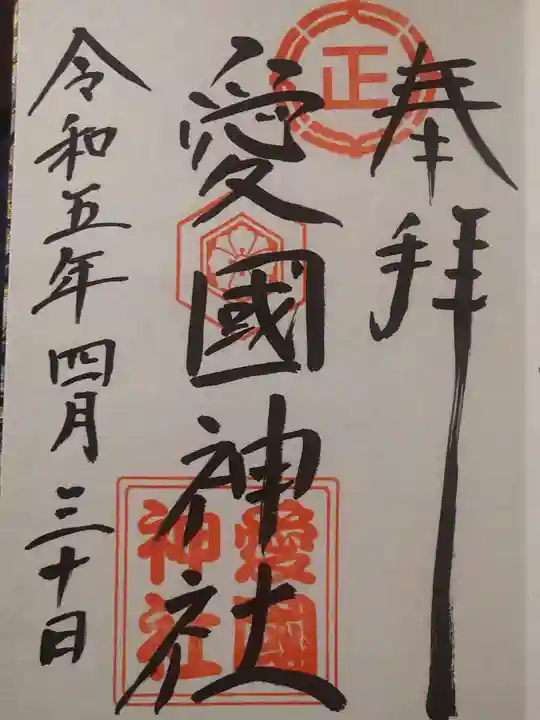 奉拝
正
愛國神社
愛國神社
令和五年四月三十日